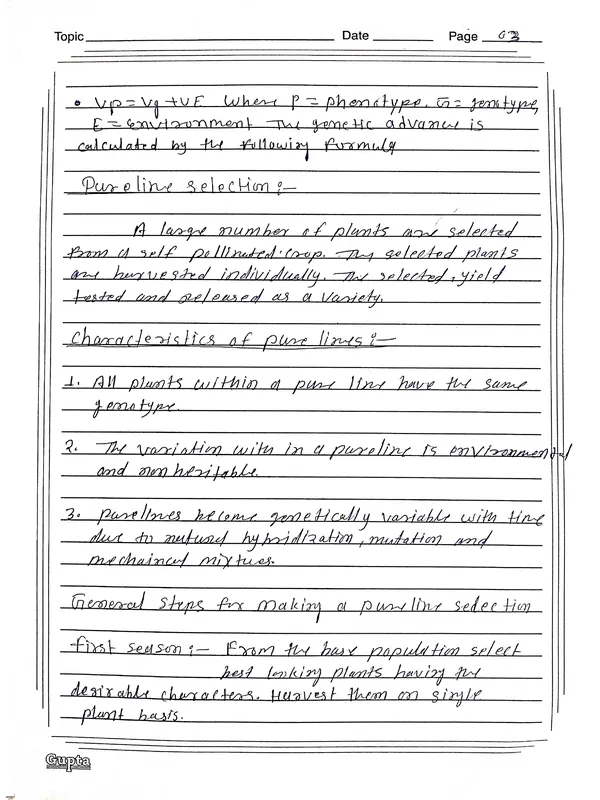 Topic Date Page 03
• Vp = Vg + VE Where P = phenotype. G = genotype,
E = environment The genetic advance is
calculated by the following formula
Pureline selection :-
A large number of plants are selected
from a self pollinated crop. The selected plants
are harvested individually. The selected, yield
tested and released as a variety.
Characteristics of pure lines :-
1. All plants within a pure line have the same
genotype.
2. The variation with in a pureline is environmental
and nonheritable.
3. purelines become genetically variable with time
due to natural hybridization, mutation and
mechanical mixtures.
General steps for making a pureline selection
first season :- From the base population select
best looking plants having the
desirable characters. Harvest them on single
plant basis.
Gupta